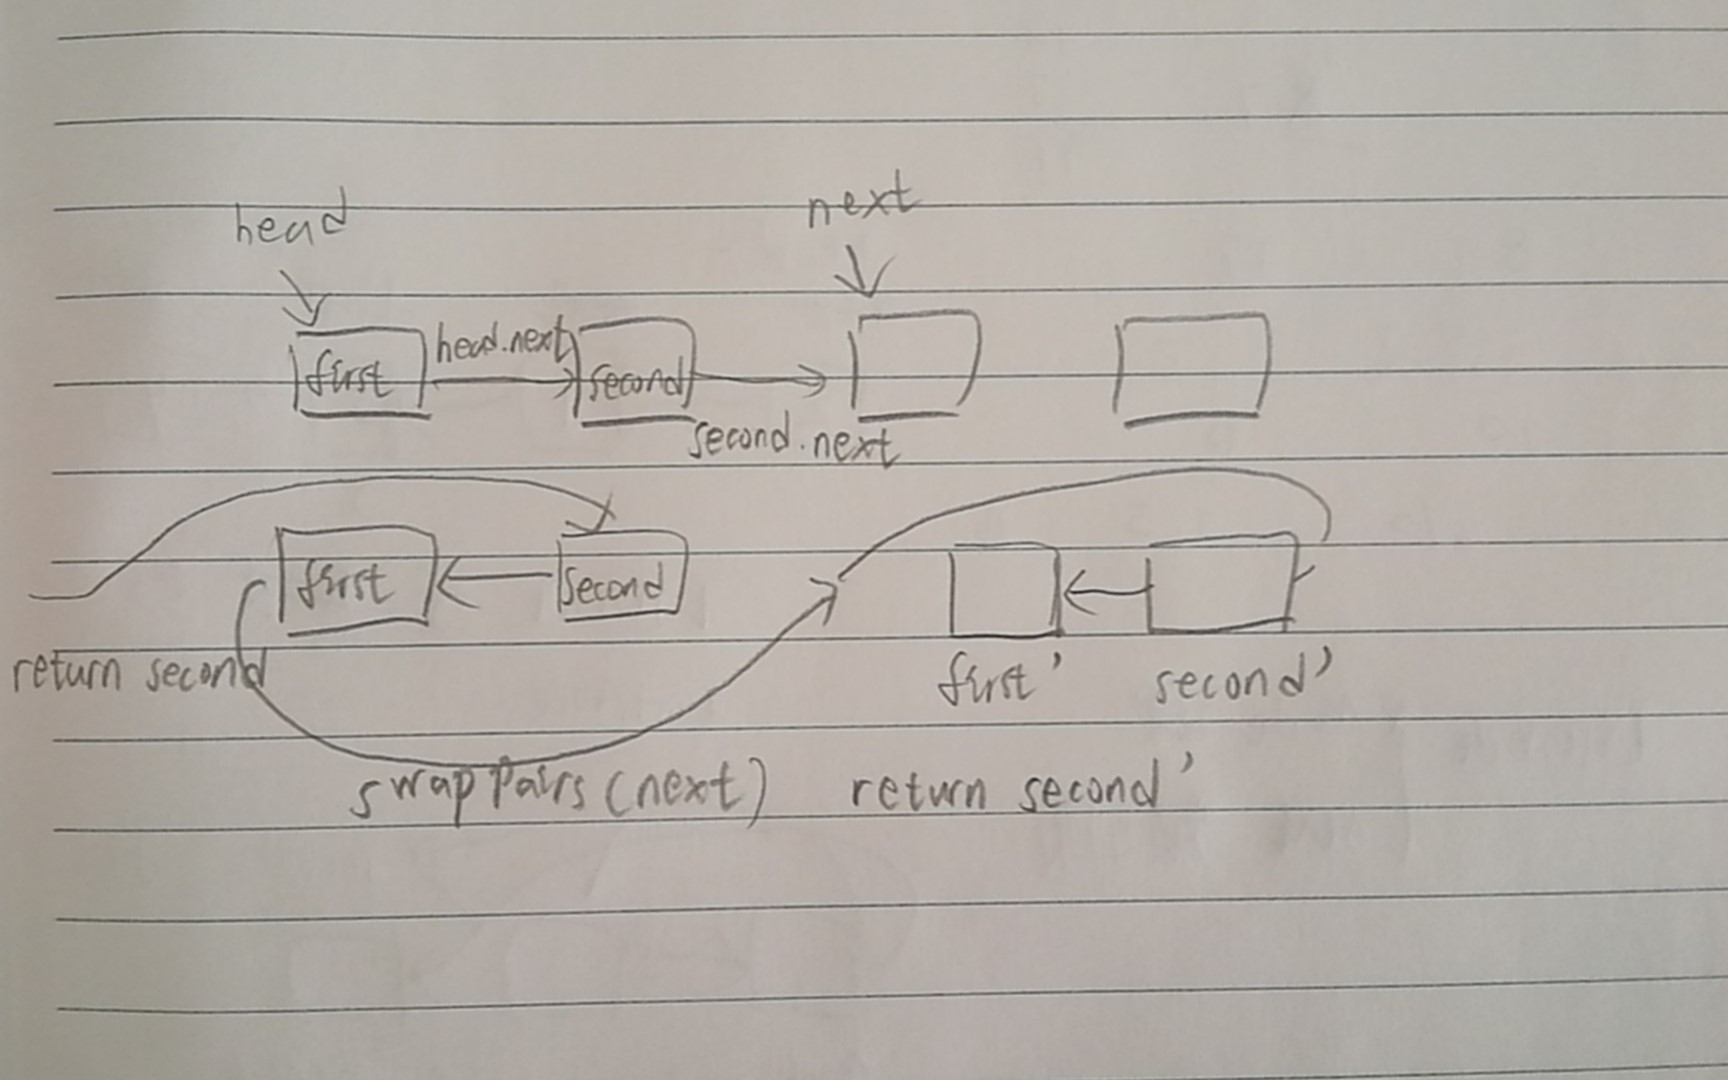 head next
first head.next second
second.next
first second
return second first' second'
swapPairs(next) return second'